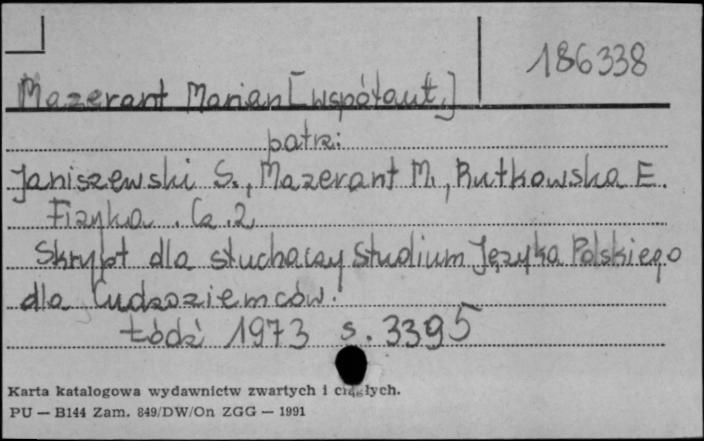 186338
Mazerant Marian [współaut.]
patrz:
Janiszewski S., Mazerant M., Rutkowska E.
Fizyka. Cz. 2
Skrypt dla słuchaczy Studium Języka Polskiego
dla Cudzoziemców.
Łódź 1973 s. 3395
Karta katalogowa wydawnictw zwartych i ciągłych.
PU — B144 Zam. 849/DW/On ZGG — 1991